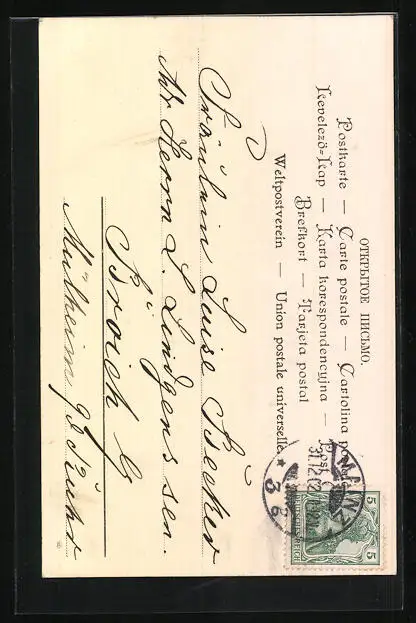 ОТКРЫТОЕ ПИСЬМО.
Postkarte — Carte postale — Cartolina po
Levelező-Lap — Karta korespondencyjna — Post
Brefkort — Tarjeta postal
Weltpostverein — Union postale universelle.
5 5
MAINZ
31.12.02
* 3 6
Fräulein Luise Becker
Adr Herrn L. Lindgens sen.
Broich b/
Mülheim a/d Ruhr